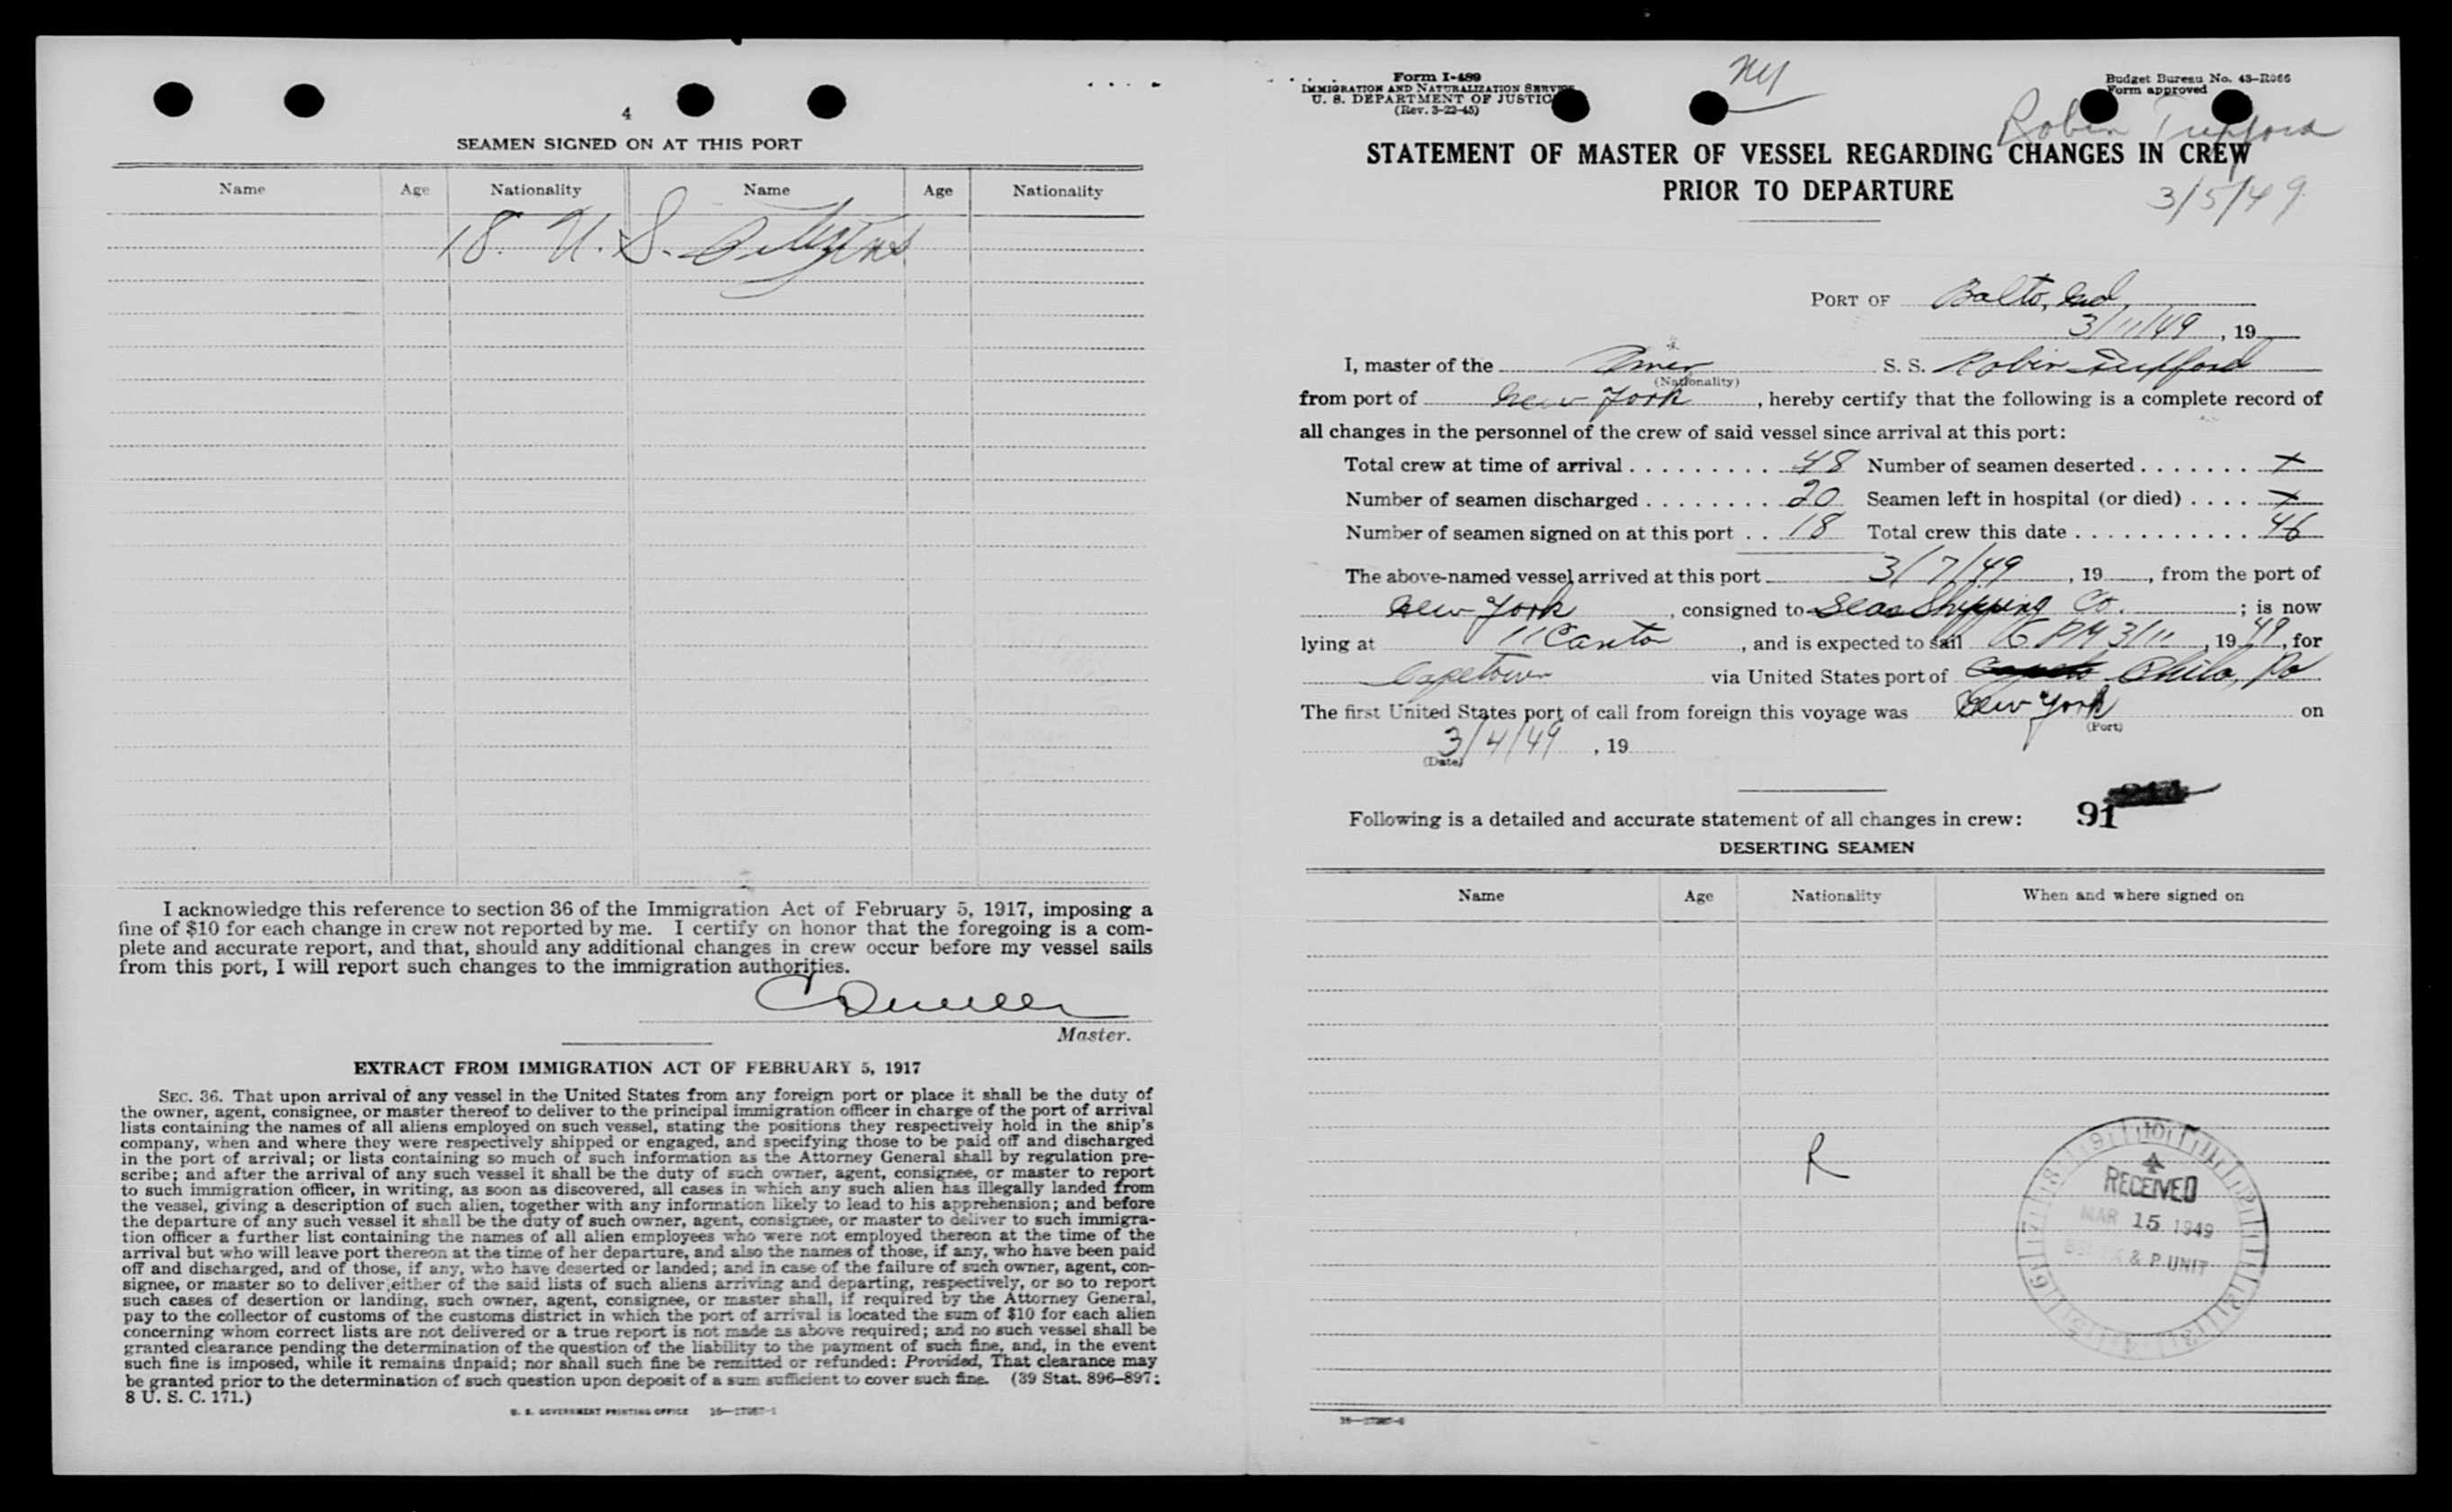 4
SEAMEN SIGNED ON AT THIS PORT
Name Age Nationality Name Age Nationality
18 U. S. Citizens
I acknowledge this reference to section 36 of the Immigration Act of February 5, 1917, imposing a
fine of $10 for each change in crew not reported by me. I certify on honor that the foregoing is a com-
plete and accurate report, and that, should any additional changes in crew occur before my vessel sails
from this port, I will report such changes to the immigration authorities.
Master.
EXTRACT FROM IMMIGRATION ACT OF FEBRUARY 5, 1917
SEC. 36. That upon arrival of any vessel in the United States from any foreign port or place it shall be the duty of
the owner, agent, consignee, or master thereof to deliver to the principal immigration officer in charge of the port of arrival
lists containing the names of all aliens employed on such vessel, stating the positions they respectively hold in the ship's
company, when and where they were respectively shipped or engaged, and specifying those to be paid off and discharged
in the port of arrival; or lists containing so much of such information as the Attorney General shall by regulation pre-
scribe; and after the arrival of any such vessel it shall be the duty of such owner, agent, consignee, or master to report
to such immigration officer, in writing, as soon as discovered, all cases in which any such alien has illegally landed from
the vessel, giving a description of such alien, together with any information likely to lead to his apprehension; and before
the departure of any such vessel it shall be the duty of such owner, agent, consignee, or master to deliver to such immigra-
tion officer a further list containing the names of all alien employees who were not employed thereon at the time of the
arrival but who will leave port thereon at the time of her departure, and also the names of those, if any, who have been paid
off and discharged, and of those, if any, who have deserted or landed; and in case of the failure of such owner, agent, con-
signee, or master so to deliver either of the said lists of such aliens arriving and departing, respectively, or so to report
such cases of desertion or landing, such owner, agent, consignee, or master shall, if required by the Attorney General,
pay to the collector of customs of the customs district in which the port of arrival is located the sum of $10 for each alien
concerning whom correct lists are not delivered or a true report is not made as above required; and no such vessel shall be
granted clearance pending the determination of the question of the liability to the payment of such fine, and, in the event
such fine is imposed, while it remains unpaid; nor shall such fine be remitted or refunded: Provided, That clearance may
be granted prior to the determination of such question upon deposit of a sum sufficient to cover such fine. (39 Stat. 896-897;
8 U. S. C. 171.)
U. S. GOVERNMENT PRINTING OFFICE
Form I-489
IMMIGRATION AND NATURALIZATION SERVICE
U. S. DEPARTMENT OF JUSTICE
(Rev. 3-22-45)
NY
Budget Bureau No. 43-R066
Form approved
Robin Tufford
STATEMENT OF MASTER OF VESSEL REGARDING CHANGES IN CREW
PRIOR TO DEPARTURE
3/5/49
PORT OF Balto, Md,
3/11/49, 19
I, master of the Amer S. S. Robin Tufford
(Nationality)
from port of New York, hereby certify that the following is a complete record of
all changes in the personnel of the crew of said vessel since arrival at this port:
Total crew at time of arrival . . . . . . . . . . 48 Number of seamen deserted . . . . . . . x
Number of seamen discharged . . . . . . . . 20 Seamen left in hospital (or died) . . . . x
Number of seamen signed on at this port . . 18 Total crew this date . . . . . . . . . . . 46
The above-named vessel arrived at this port 3/7/49, 19, from the port of
New York, consigned to Seas Shipping Co.; is now
lying at 11 Canton, and is expected to sail 6 PM 3/11, 1949, for
Capetown via United States port of Phila, Pa
The first United States port of call from foreign this voyage was New York on
(Port)
3/4/49, 19
(Date)
Following is a detailed and accurate statement of all changes in crew: 91
DESERTING SEAMEN
Name Age Nationality When and where signed on
R
RECEIVED
MAR 15 1949
& P UNIT